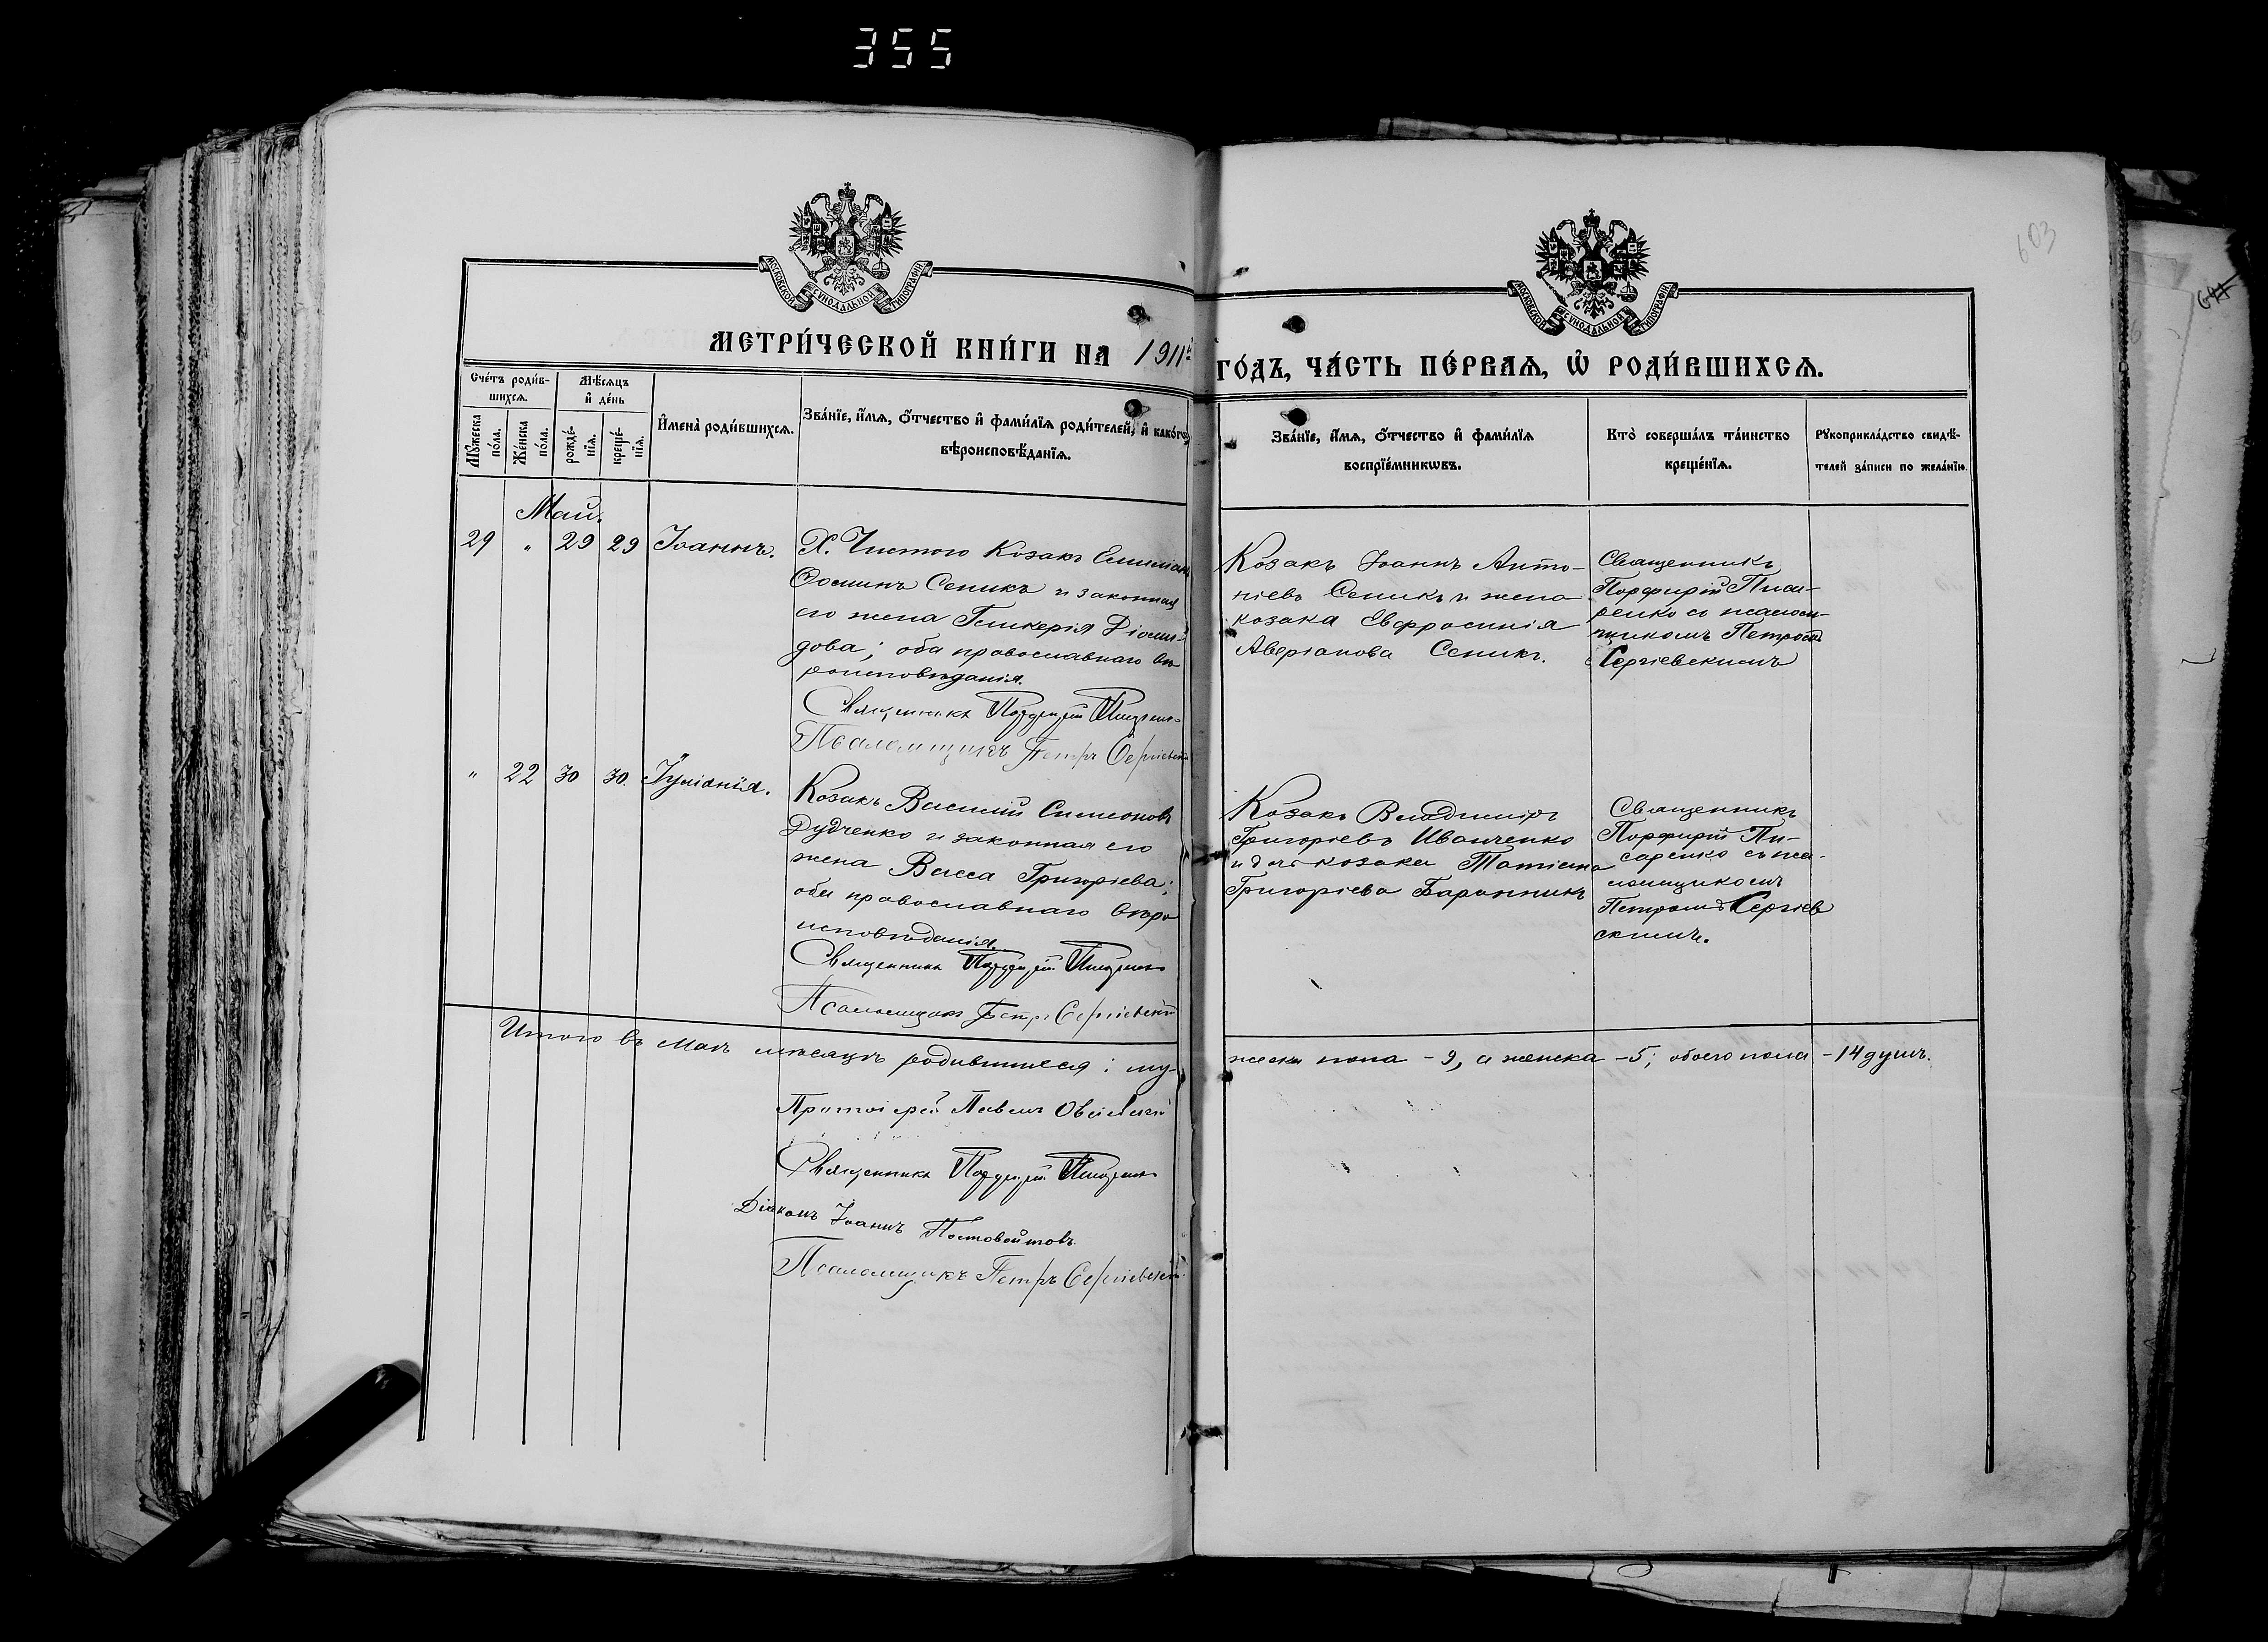 355
603
МОСКОВСКОЙ СУНОДАЛЬНОЙ ТИПОГРАФІИ
МОСКОВСКОЙ СУНОДАЛЬНОЙ ТИПОГРАФІИ
МЕТРИ́ЧЕСКОЙ КНИ́ГИ НА 1911й ГО́ДЪ, ЧА́СТЬ ПЕ́РВАѦ, Ѡ҆ РОДИ́ВШИХСѦ.
Сче́тъ роди́в-
шихсѧ.
Мꙋ́жеска
по́ла.
Же́нска
по́ла.
Мѣ́сѧцъ
и҆ де́нь
рожде́-
нїѧ.
креще́-
нїѧ.
И҆мена̀ роди́вшихсѧ.
Зва́нїе, и҆́мѧ, ѻ҆́тчество и҆ фами́лїѧ роди́телей, и҆ како́гѡ
вѣроисповѣ́данїѧ.
Зва́нїе, и҆́мѧ, ѻ҆́тчество и҆ фами́лїѧ
воспрїе́мникѡвъ.
Кто̀ соверша́лъ та́инство
креще́нїѧ.
Рꙋкоприкла́дство свидѣ́-
телей за́писи по жела́нїю.
Май.
29 " 29 29 Іоаннъ.
Х. Чистого Козакъ Емиліан
Фоминъ Сеникъ и законная
его жена Гликерія Діоми-
дова; оба православнаго вѣ
роисповѣданія.
Священникъ Порфирій Писаренко
Псаломщикъ Петръ Сергіевскій
Козакъ Іоаннъ Анто-
ніевъ Сеникъ и жена
козака Евфросинія
Аверіанова Сеникъ.
Священникъ
Порфирій Писа-
ренко со псалом-
щикомъ Петромъ
Сергіевскимъ
" 22 30 30. Іуліанія.
Козакъ Василій Симеоновъ
Дудченко и законная его
жена Васса Григоріева;
оба православнаго вѣро
исповѣданія.
Священникъ Порфирій Писаренко
Псаломщикъ Петръ Сергіевскій
Козакъ Владиміръ
Григоріевъ Иванченко
и дочь козака Татіана
Григоріева Баранникъ
Священникъ
Порфирій Пи-
саренко съ пса-
ломщикомъ
Петромъ Сергіев
скимъ.
Итого въ маѣ мѣсяцѣ родившихся: му-
жеска пола - 9, а женска - 5; обоего пола - 14 душъ.
Протоіерей Павелъ
Священникъ Порфирій Писаренко
Діаконъ Іоаннъ Постовойтовъ.
Псаломщикъ Петръ Сергіевскій.